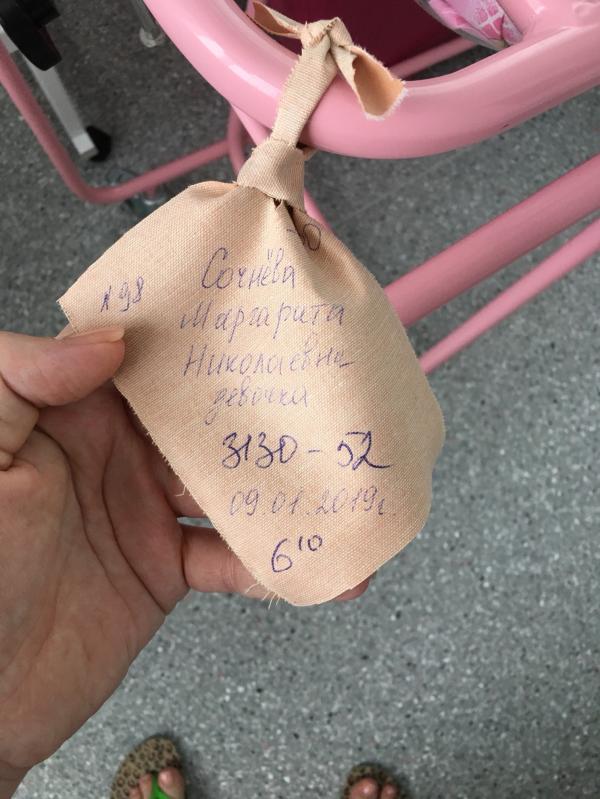 N 98
Сочнёва
Маргарита
Николаевна
девочка
3130 - 52
09.01.2019г.
6¹⁰